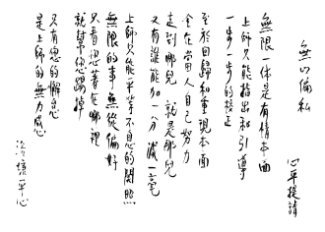 無以偷私
心平提請
無限一体是有情本面
上師只能指出和引導
一步一步的接近
至於回歸和重現本面
全在當人自己努力
走到哪兒 就是那兒
又有誰能加一分減一毫
上師只能平等不息的關照
無限的事無從偏好
只看您善在哪裡
就幫您
只有您的懈怠
是上師的無力感